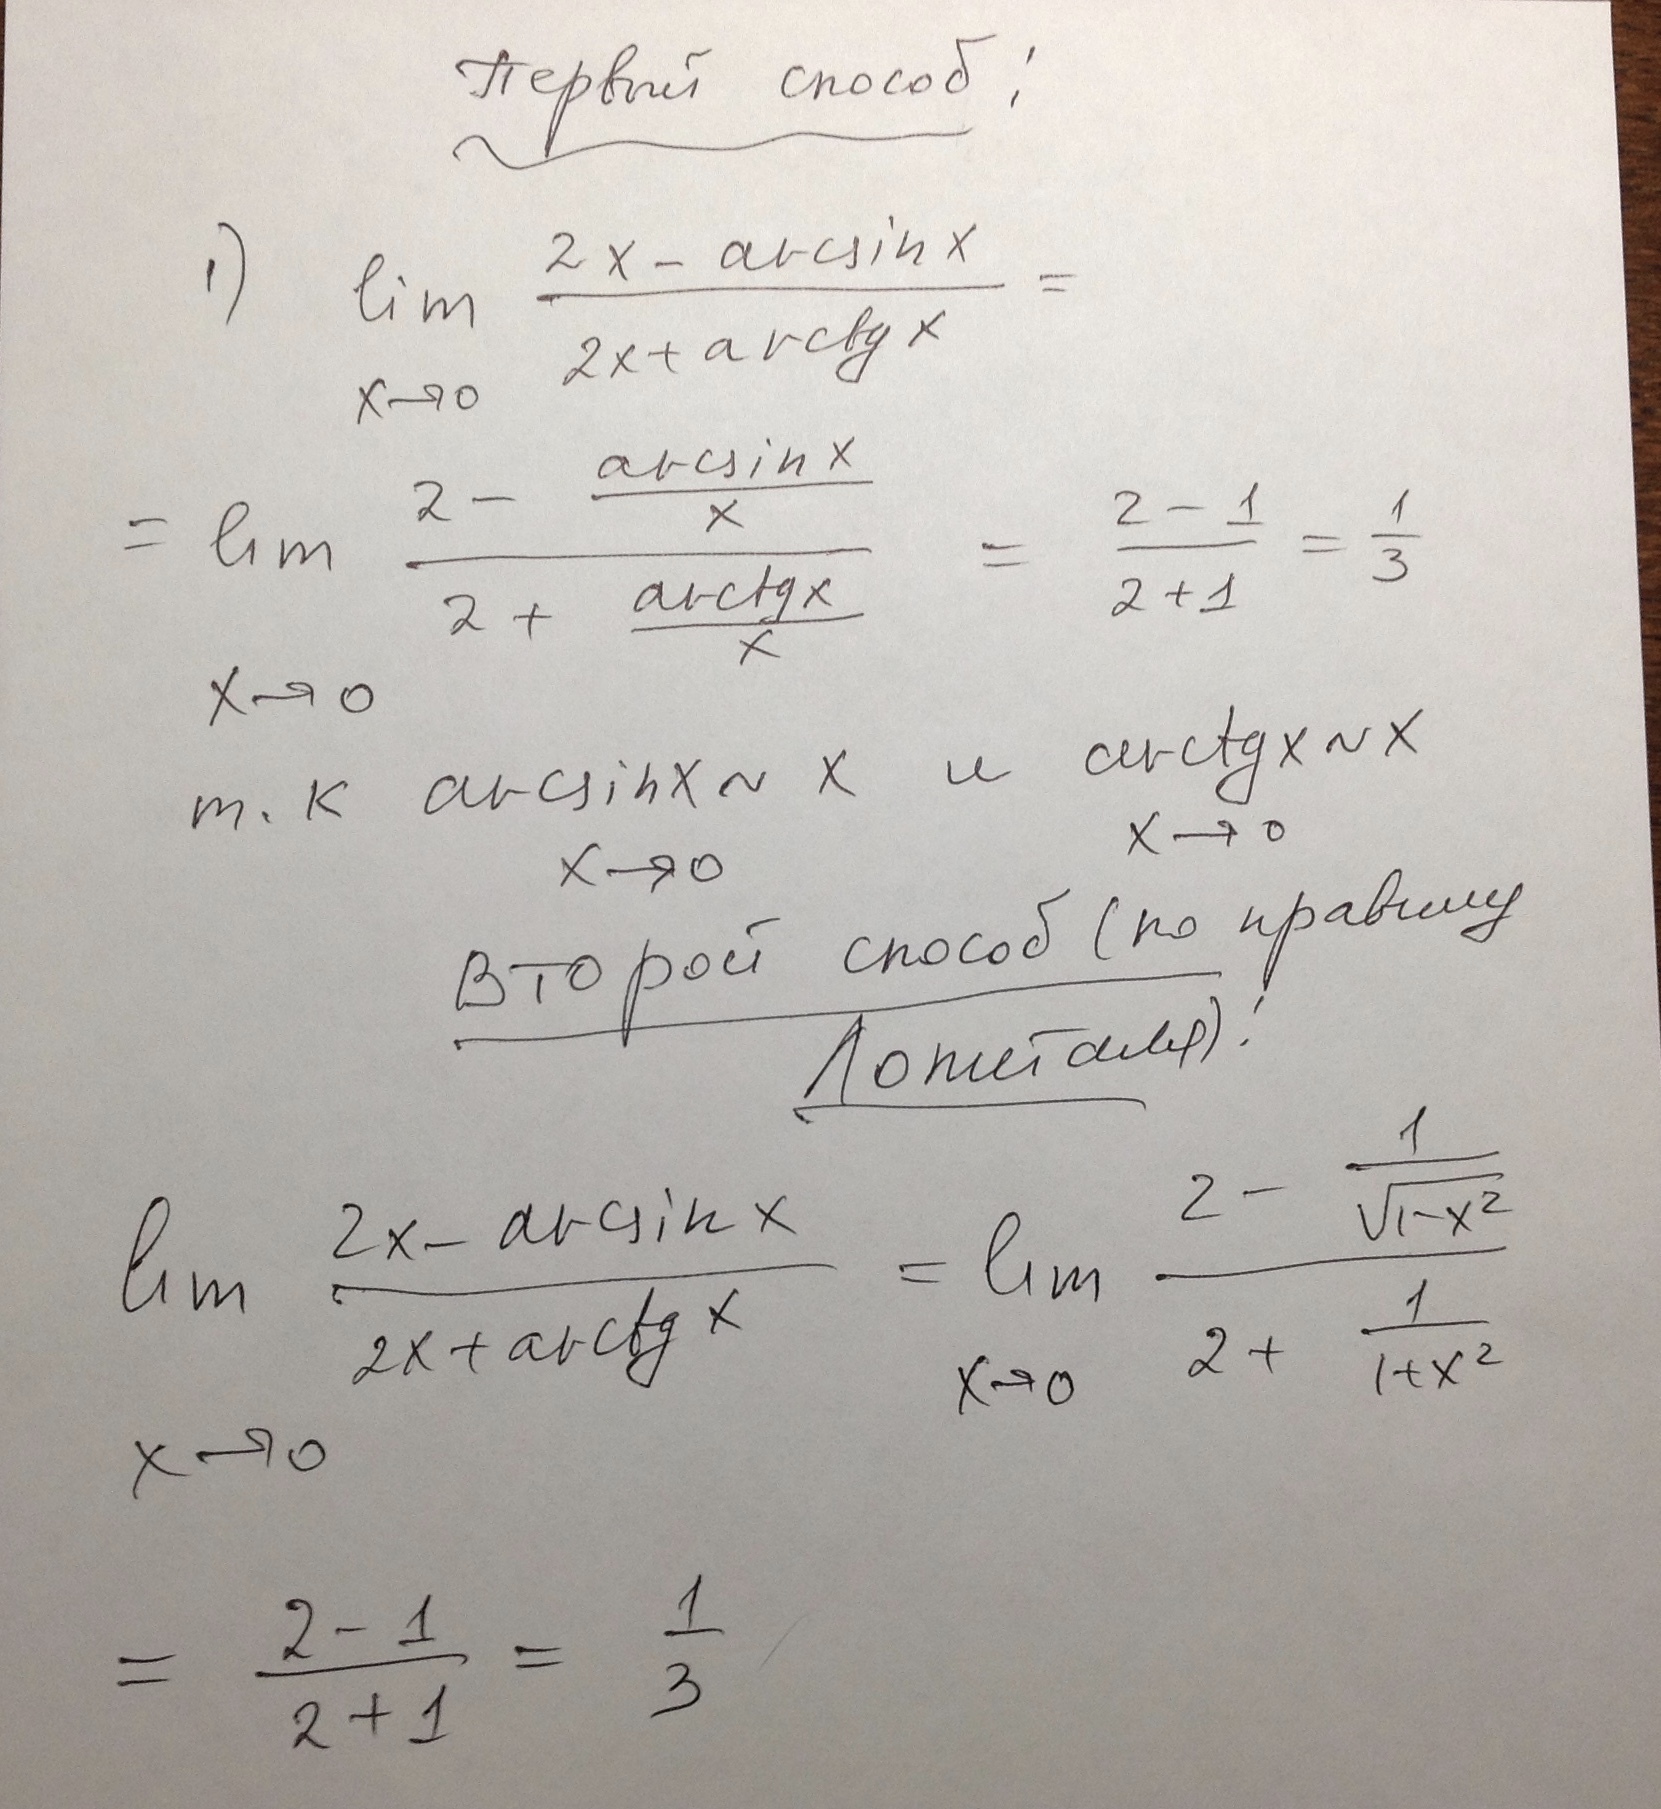 Первый способ:
1) lim (2x - arcsin x)/(2x + arctg x) =
x→0
= lim (2 - (arcsin x)/x)/(2 + (arctg x)/x) = (2 - 1)/(2 + 1) = 1/3
x→0
т.к arcsin x ~ x и arctg x ~ x
x→0 x→0
Второй способ (по правилу
Лопиталя):
lim (2x - arcsin x)/(2x + arctg x) = lim (2 - 1/√(1-x²))/(2 + 1/(1+x²))
x→0 x→0
= (2 - 1)/(2 + 1) = 1/3